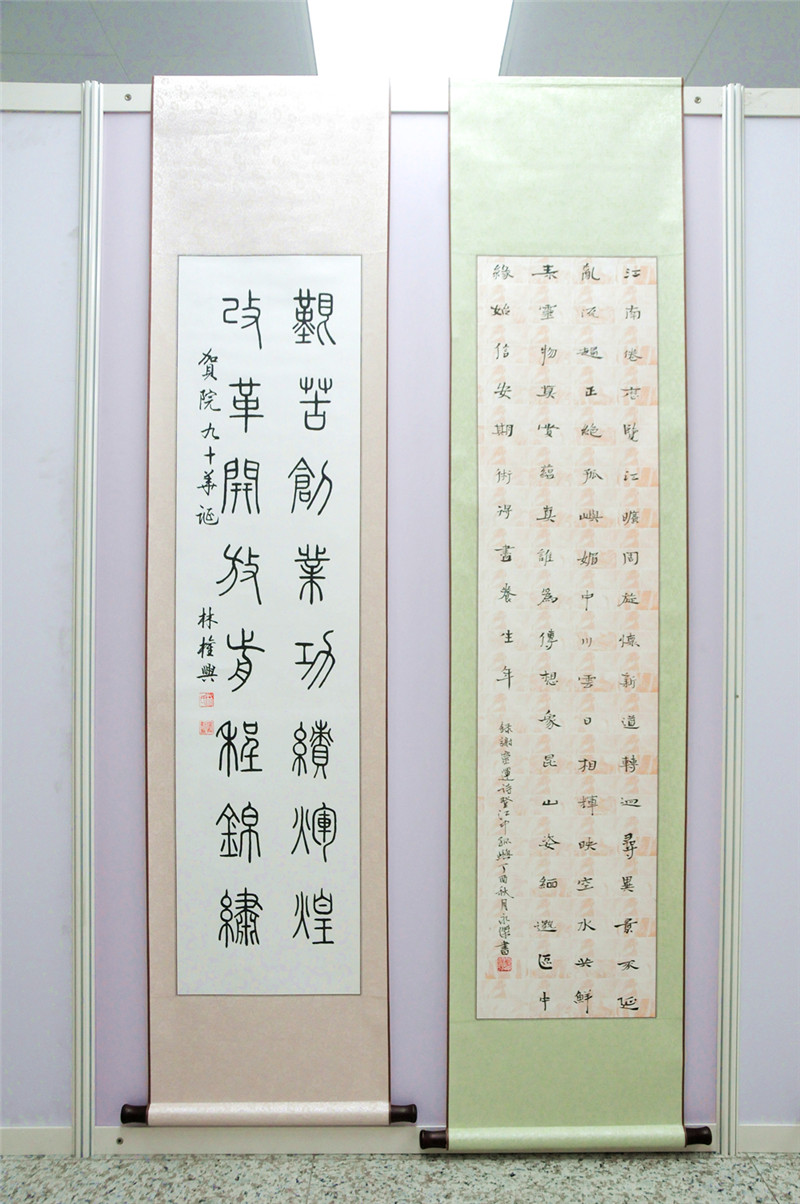 江南倦歷覽江曠周旋懷新道轉迴尋異景不延
亂流趨正絕孤嶼媚中川雲日相輝映空水共鮮
表靈物莫賞蘊真誰為傳想象昆山姿緬邈區中
緣始信安期術得盡養生年
錄謝靈運诗登江中孤嶼丁酉秋月永傑書
艱苦創業功績輝煌
改革開放前程錦繡
贺院九十華诞
林權興